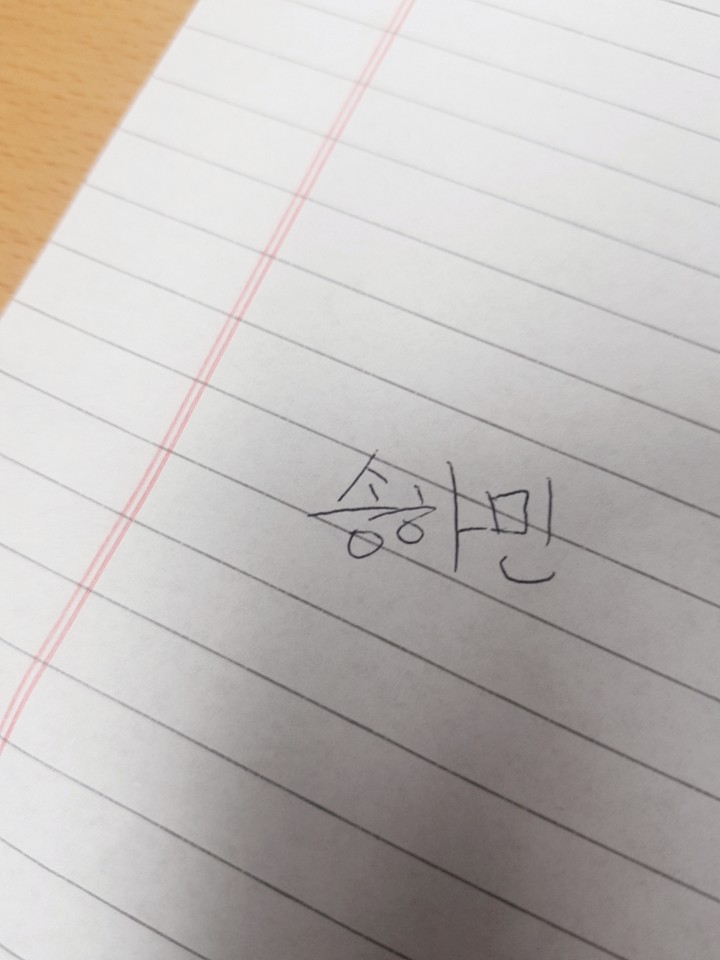 송하민